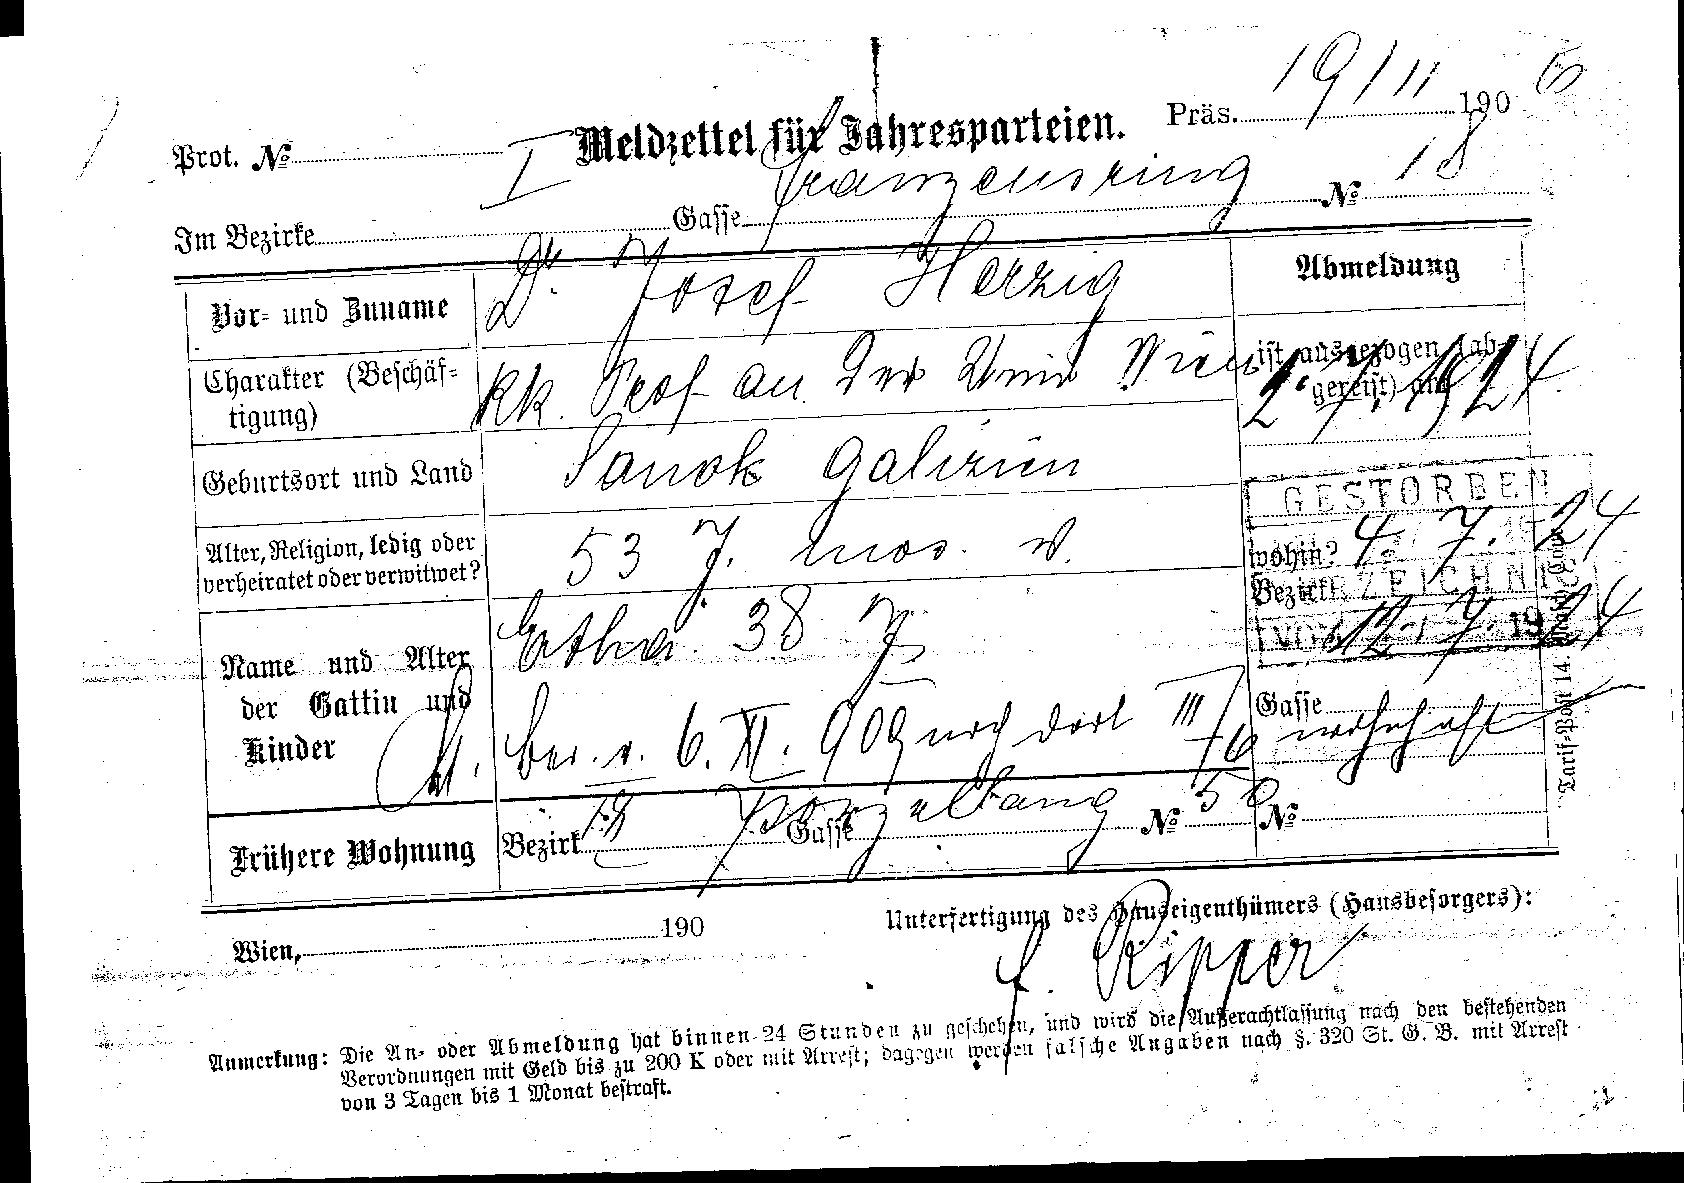 Prot. № Meldzettel für Jahresparteien. Präs. 19/11 1906
Im Bezirke I Gasse Franzensring № 18
Vor- und Zuname Dr. Josef Herzig
Abmeldung
Charakter (Beschäf-
tigung) kk. Prof an der Univ Wien
ist ausgezogen (ab-
gereist) am 2.7.1924
Geburtsort und Land Sanok Galizien
Alter, Religion, ledig oder
verheiratet oder verwitwet? 53 J. mos. v.
GESTORBEN
wohin? 4. 7. 24
Bezirk
12. 7. 1924
Name und Alter
der Gattin und
Kinder
38 J
ber. v. 6. XI. 909 noch dort III/6 wohnhaft
Gasse
Frühere Wohnung Bezirk Gasse Porzellang № 56 №
Tarif-Post 14.
Wien, 190
Unterfertigung des Hauseigenthümers (Hausbesorgers):
f. Ripper
Anmerkung: Die An- oder Abmeldung hat binnen 24 Stunden zu geschehen, und wird die Außerachtlassung nach den bestehenden
Verordnungen mit Geld bis zu 200 K oder mit Arrest; dagegen werden falsche Angaben nach §. 320 St. G. B. mit Arrest
von 3 Tagen bis 1 Monat bestraft.